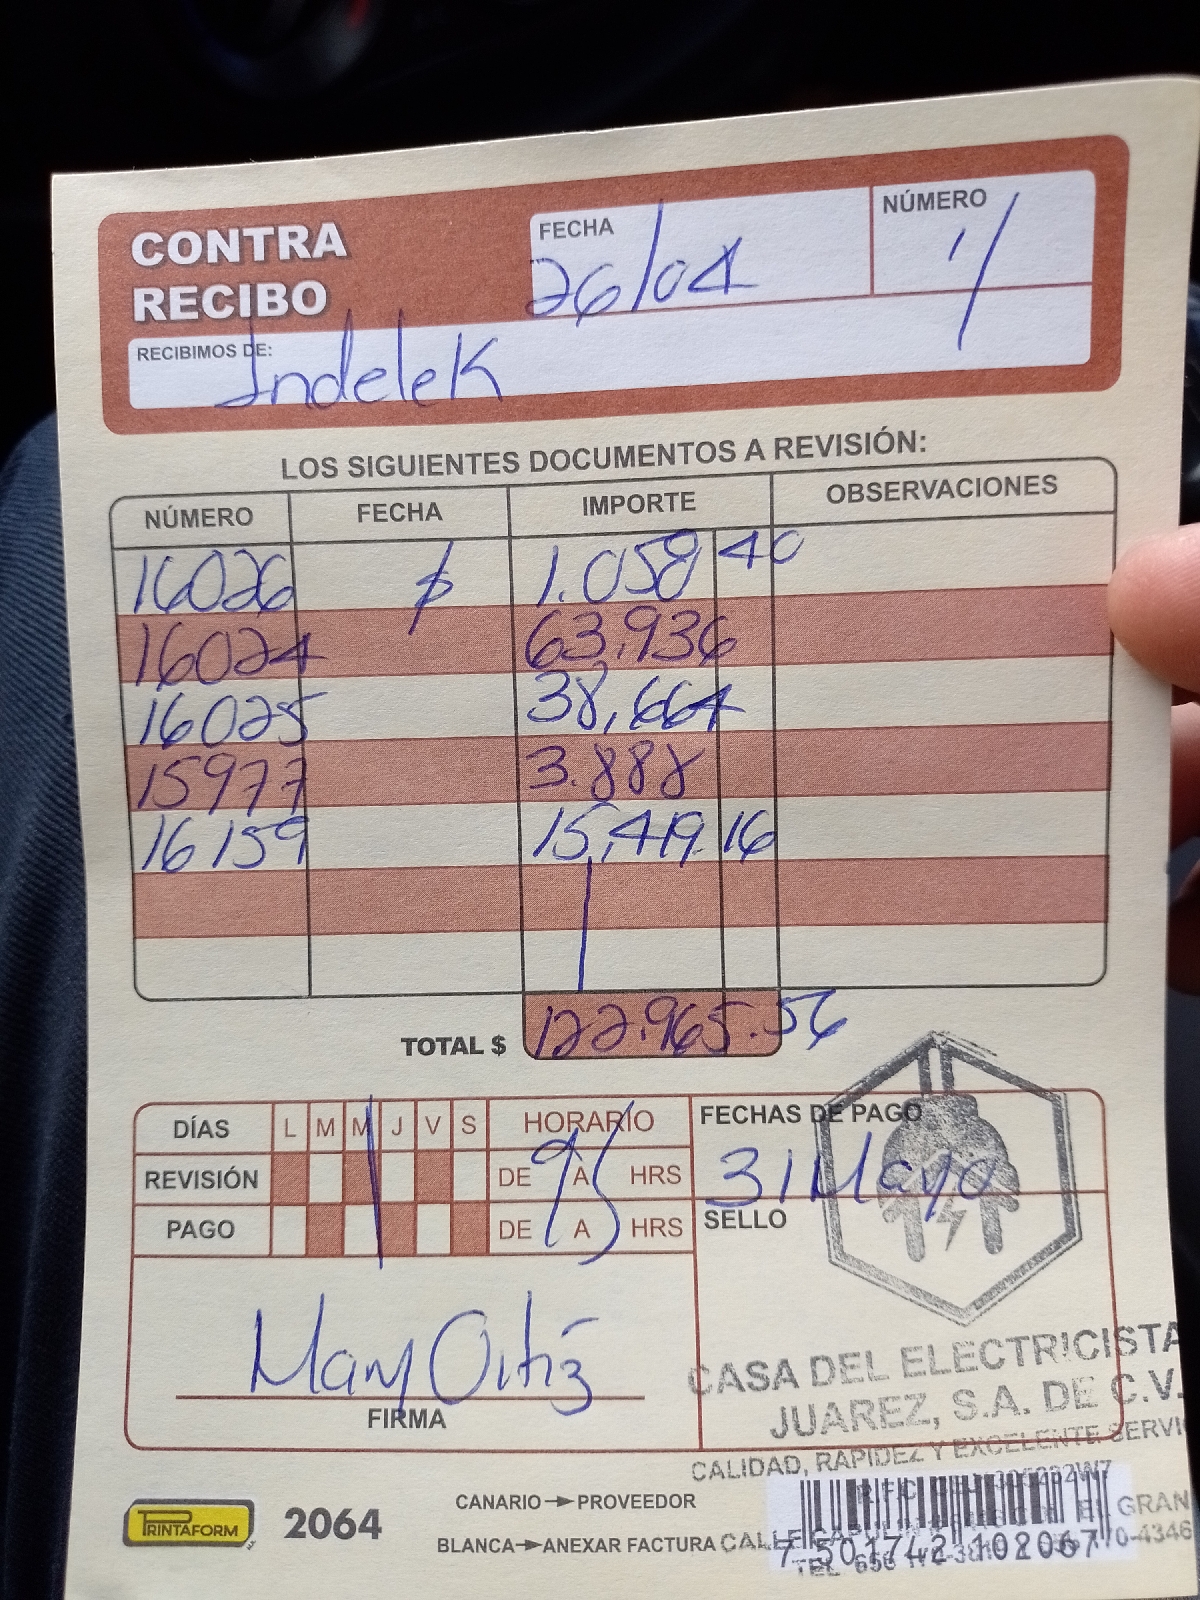 CONTRA RECIBO
FECHA 26/04
NÚMERO 1/
RECIBIMOS DE: Indelek
LOS SIGUIENTES DOCUMENTOS A REVISIÓN:
NÚMERO FECHA IMPORTE OBSERVACIONES
16026 $ 1.058 40
16024 63,936
16025 38,664
15977 3.888
16159 15,419.16
TOTAL $ 122.965.56
DÍAS L M M J V S HORARIO
REVISIÓN DE A HRS
PAGO DE A HRS
9 5
FECHAS DE PAGO
31 Mayo
SELLO
Mary Ortiz
FIRMA
CASA DEL ELECTRICISTA
JUAREZ, S.A. DE C.V.
CALIDAD, RAPIDEZ Y EXCELENTE SERVI
GRAN
CALLE
TEL 656
0-4346
PRINTAFORM 2064
CANARIO PROVEEDOR
BLANCA ANEXAR FACTURA
7 501742 102067